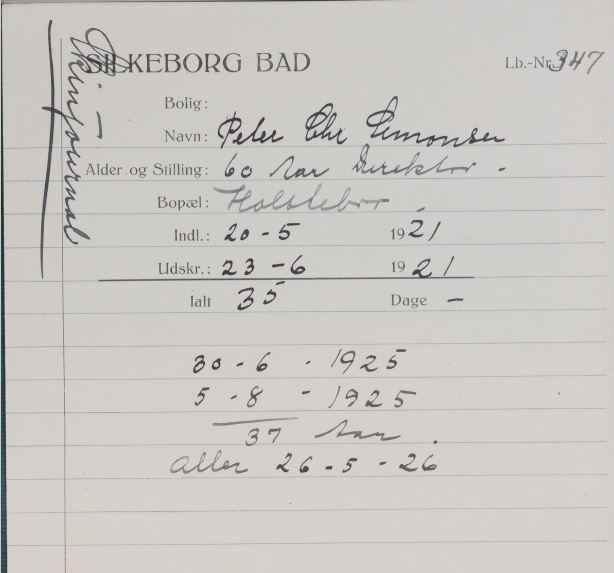 Skinjournal
SILKEBORG BAD
Lb.-Nr. 347
Bolig:
Navn: Peter Chr Simonsen
Alder og Stilling: 60 Aar Direktør -
Bopæl: Holstebro -
Indl.: 20 - 5 1921
Udskr.: 23 - 6 1921
Ialt 35 Dage -
30 - 6 - 1925
5 - 8 - 1925
37 Aar .
26 - 5 - 26